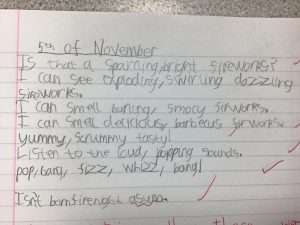 5th of November
Is that a sparcling, bright fireworks?
I can see exploding, swirling dazzling
fireworks.
I can smell buning, smocy firworks.
I can smell delicious, barbecus firworks.
yummy, scrummy tasty!
Listen to the loud, popping sounds.
pop, bang, fizz, whizz, bang!
Isn't bomfirenght